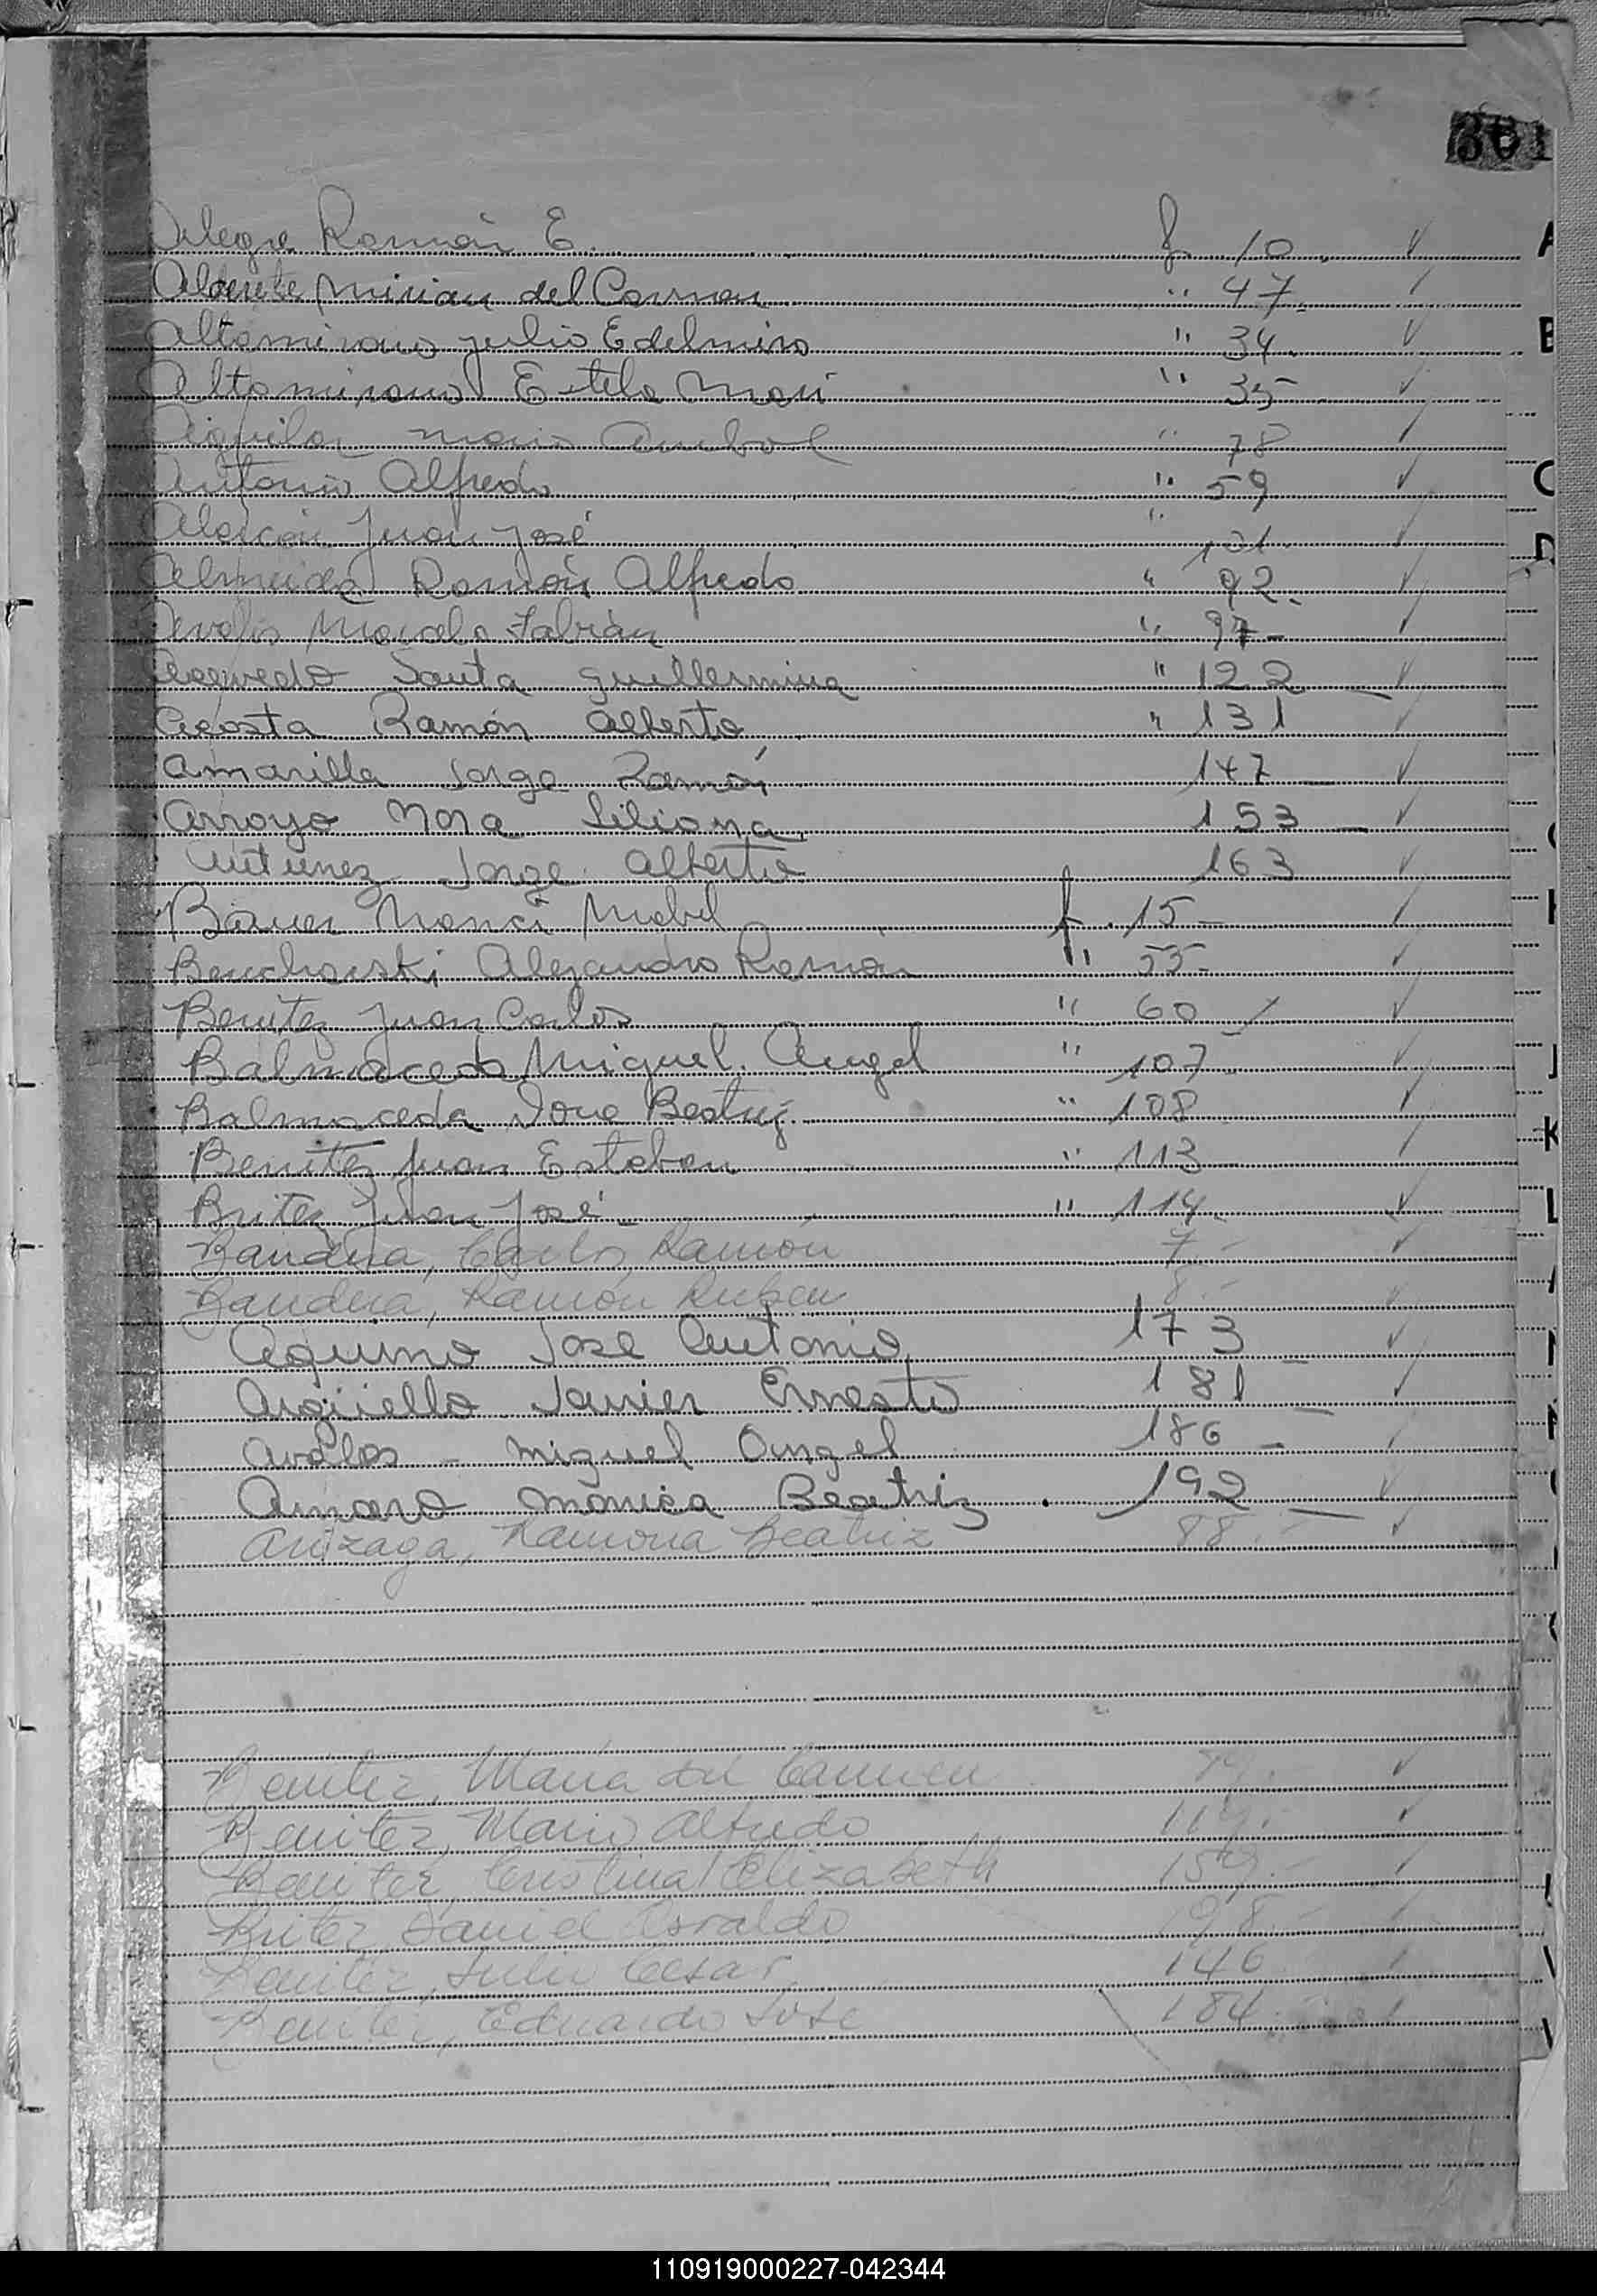 301
Alegre Ramón E. f. 10.
A
Alderete Mirian del Carmen " 47.
Altamirano Julio Edelmiro " 34.
B
Altamirano Estela Mari " 35
Aiguilar Mario Anibal " 78
Antonio Alfredo " 59
C
Alarcón Juan José " 101.
D
Almeida Ramón Alfredo " 92.
Marcelo Fabián " 97-
Acevedo Santa Guillermina " 122
Acosta Ramón Alberto " 131
Amarilla Jorge Ramón 147
Arroyo Nora Liliana 153
Antunez Jorge Alberto 163
Bauer Nanci Mabel f. 15-
Alejandro Ramón " 55-
Benitez Juan Carlos " 60
Balmaceda Miguel Angel " 107
J
Balmaceda Beatriz " 108
K
Benitez Juan Esteban " 113
Britez Juan José " 114.
L
Bandera, Carlos Ramón 7.-
Bandera, Ramón Ruben 8.-
Aquino Jose Antonio 173
Argüello Javier Ernesto 181
Avalos - Miguel Angel 186
Amaro Monica Beatriz 192
Arizaga, Ramona Beatriz 88.-
Benitez, Maria del Carmen
Benitez, Mario Alfredo 119.-
Benitez, Cristina Elizabeth 159.-
Britez, Daniel Osvaldo 198.-
Benitez, Julio Cesar 146
Benitez, Eduardo José 184.-
110919000227-042344